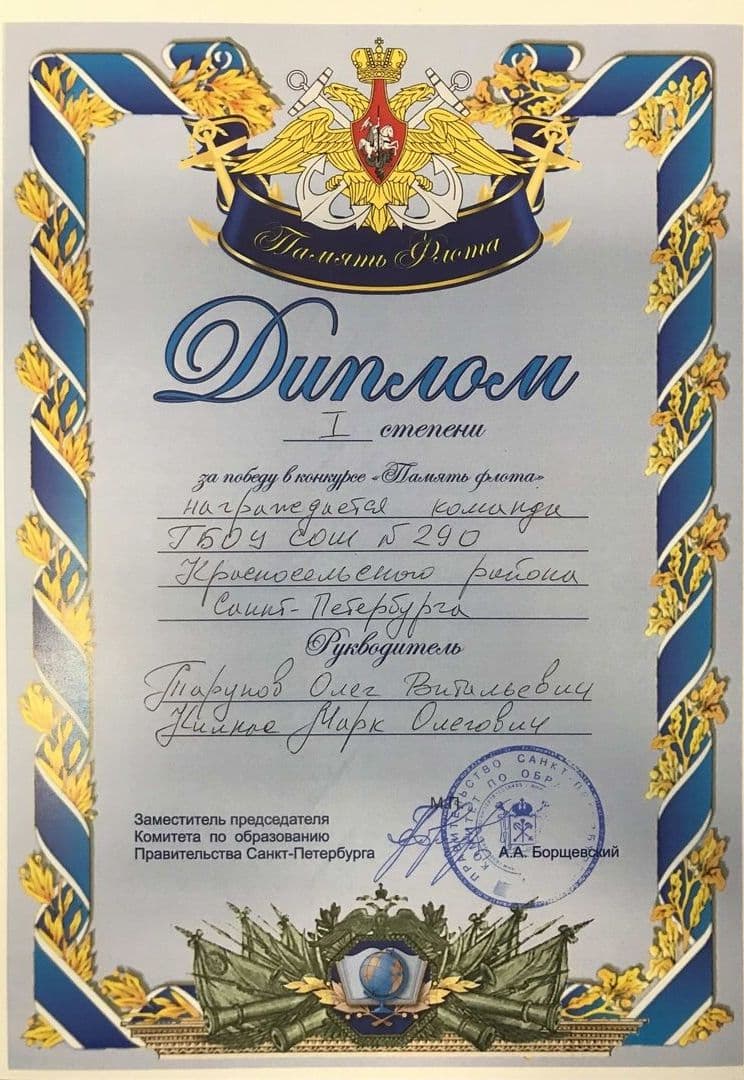 Память Флота
Диплом
I степени
за победу в конкурсе «Память флота»
награждается команда
ГБОУ СОШ №290
Красносельского района
Санкт-Петербурга
Руководитель
Тарунов Олег Витальевич
Марк Олегович
М.П.
Заместитель председателя
Комитета по образованию
Правительства Санкт-Петербурга
А.А. Борщевский
ПРАВИТЕЛЬСТВО САНКТ-ПЕ
КОМИТЕТ ПО ОБРА